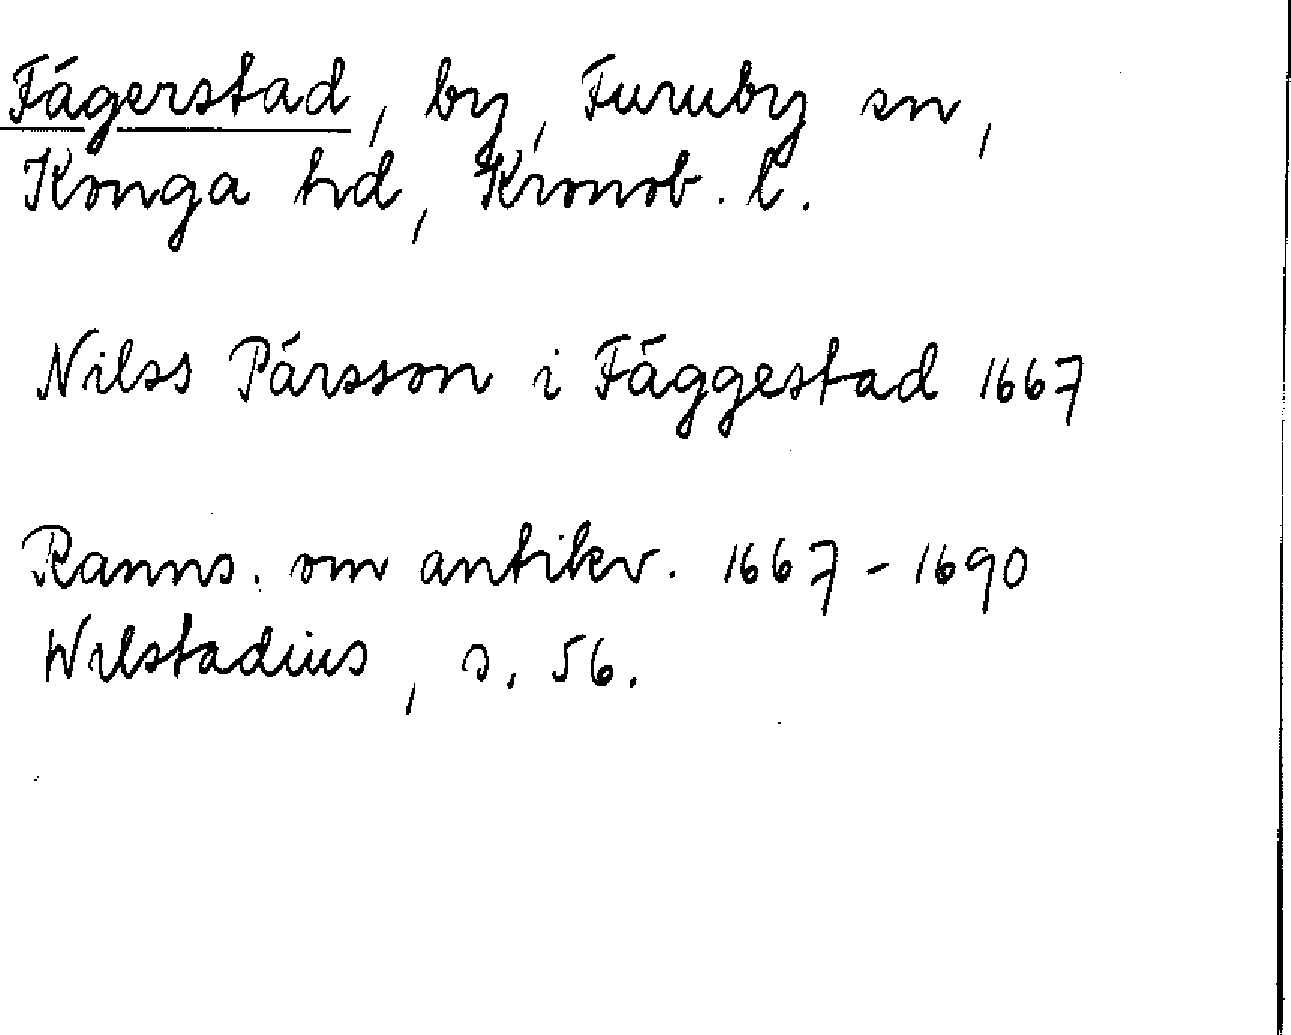 Fägerstad, by, Furuby sn,
Konga hd, Kronob. l.
Nilss Pärsson i Fäggestad 1667
Ranns. om antikv. 1667-1690
Wilstadius, s. 56.